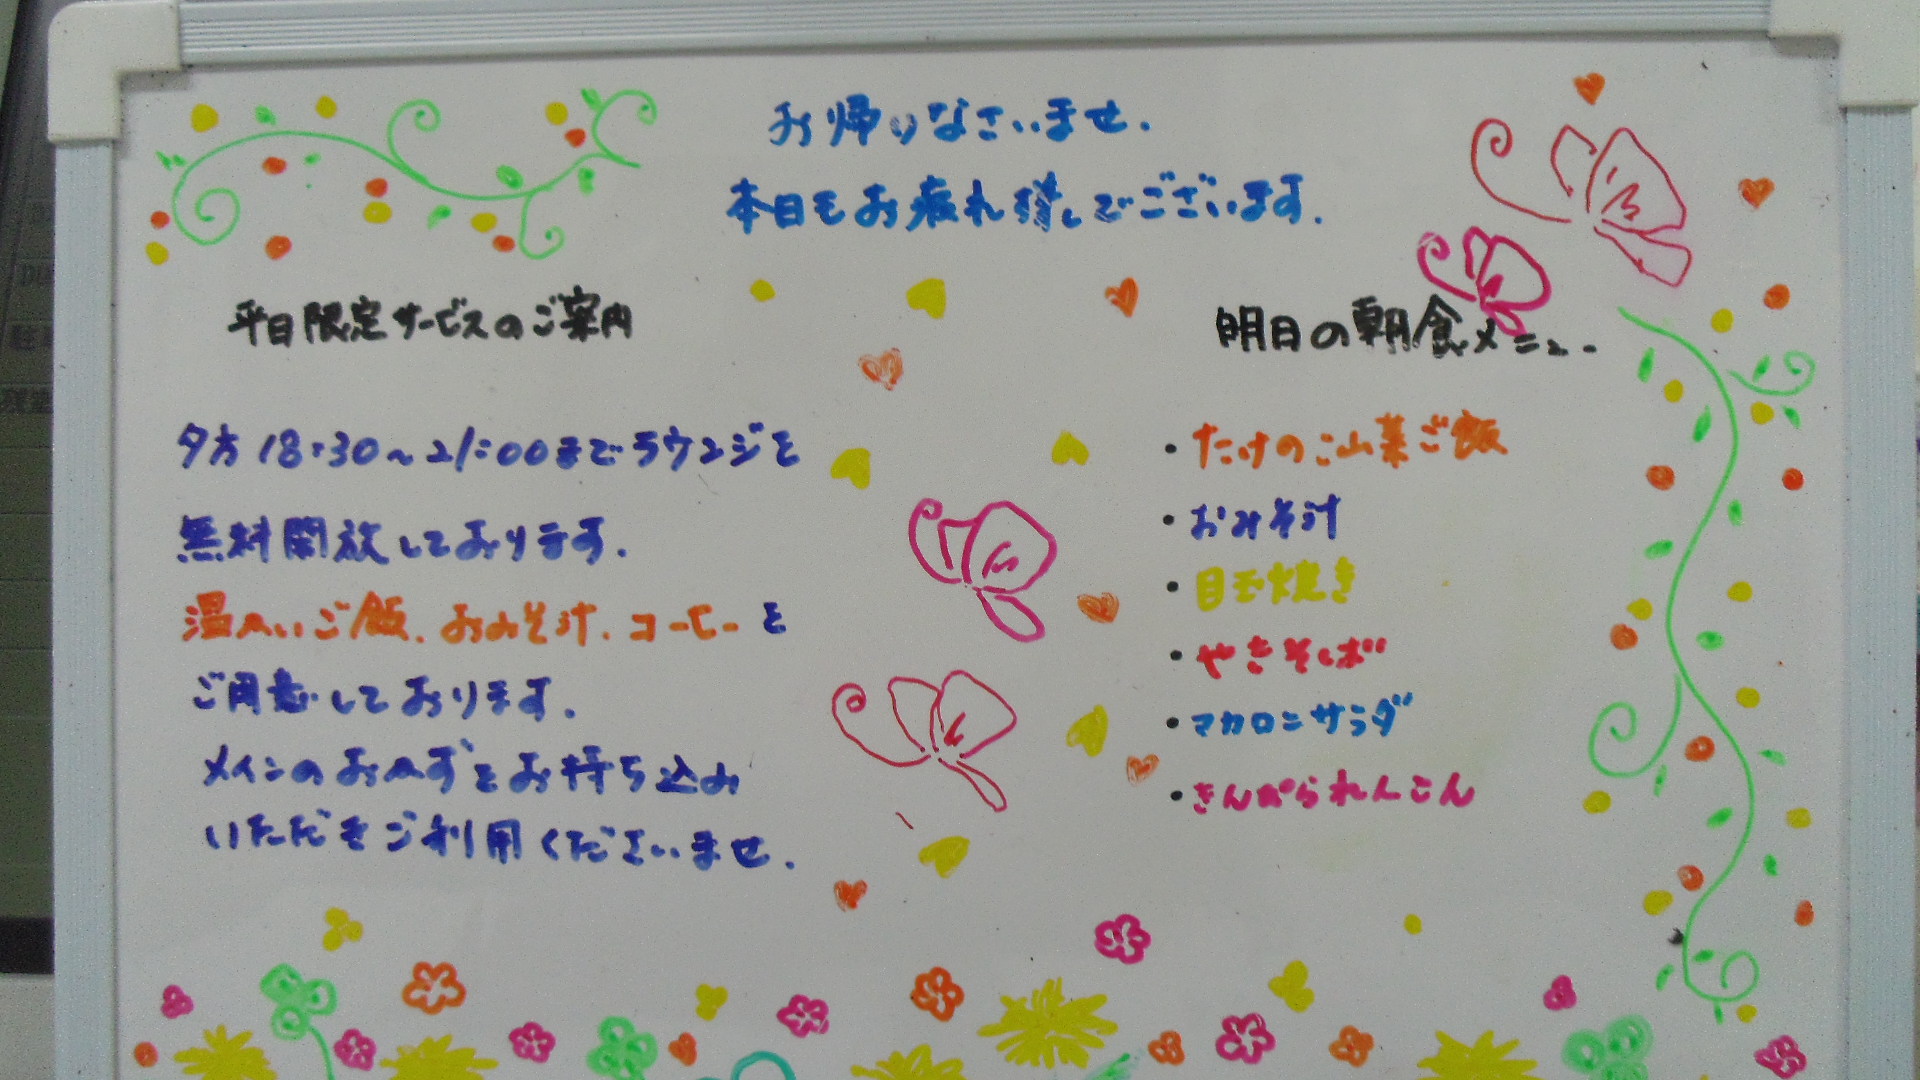 お帰りなさいませ.
本日もお疲れ様でございます.
平日限定サービスのご案内
夕方18:30~21:00までラウンジを
無料開放しております.
温かいご飯.おみそ汁.コーヒーを
ご用意しております.
メインのおかずをお持ち込み
いただきご利用くださいませ.
明日の朝食メニュー
・たけのこ山菜ご飯
・おみそ汁
・目玉焼き
・やきそば
・マカロニサラダ
・きんぴられんこん